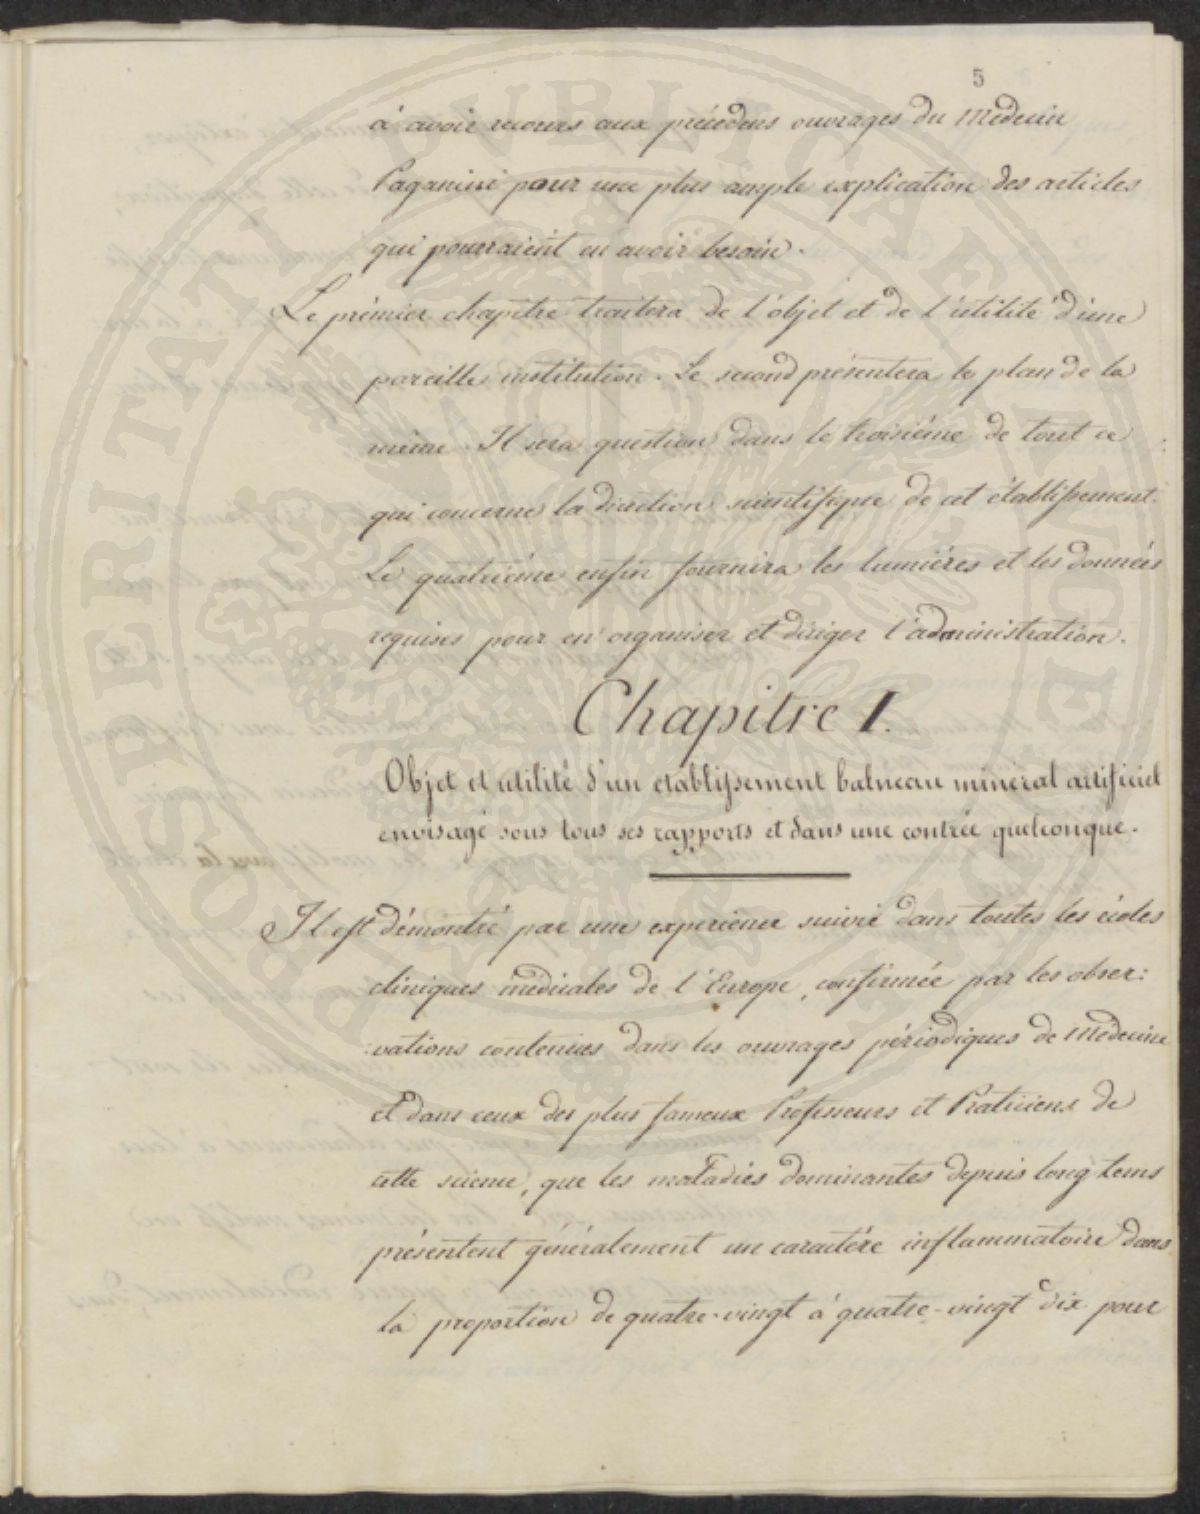 5
à avoir recours aux précédens ouvrages du Médecin
Paganini pour une plus ample explication des articles
qui pourraient en avoir besoin.
Le prémier chapitre traitera de l'objet et de l'utilité d'une
pareille institution. Le second présentera le plan de la
même. Il sera question dans le troisiéme de tout ce
qui concerne la direction scientifique de cet établissement.
Le quatriéme enfin fournira les lumiéres et les données
requises pour en organiser et diriger l'administration.
Chapitre I.
Objet et utilité d'un etablissement balneau minéral artificiel
envisagé sous tous ses rapports et dans une contrée quelconque.
Il est démontré par une experience suivie dans toutes les écoles
cliniques médicales de l'Europe, confirmée par les obser:
:vations contenues dans les ouvrages périodiques de Médecine
et dans ceux des plus fameux Professeurs et Praticiens de
cette science, que les maladies dominantes depuis long tems
présentent généralement un caractére inflammatoire dans
la proportion de quatre-vingt à quatre-vingt dix pour
PROSPERITATI PVBLICAE AVGENDAE